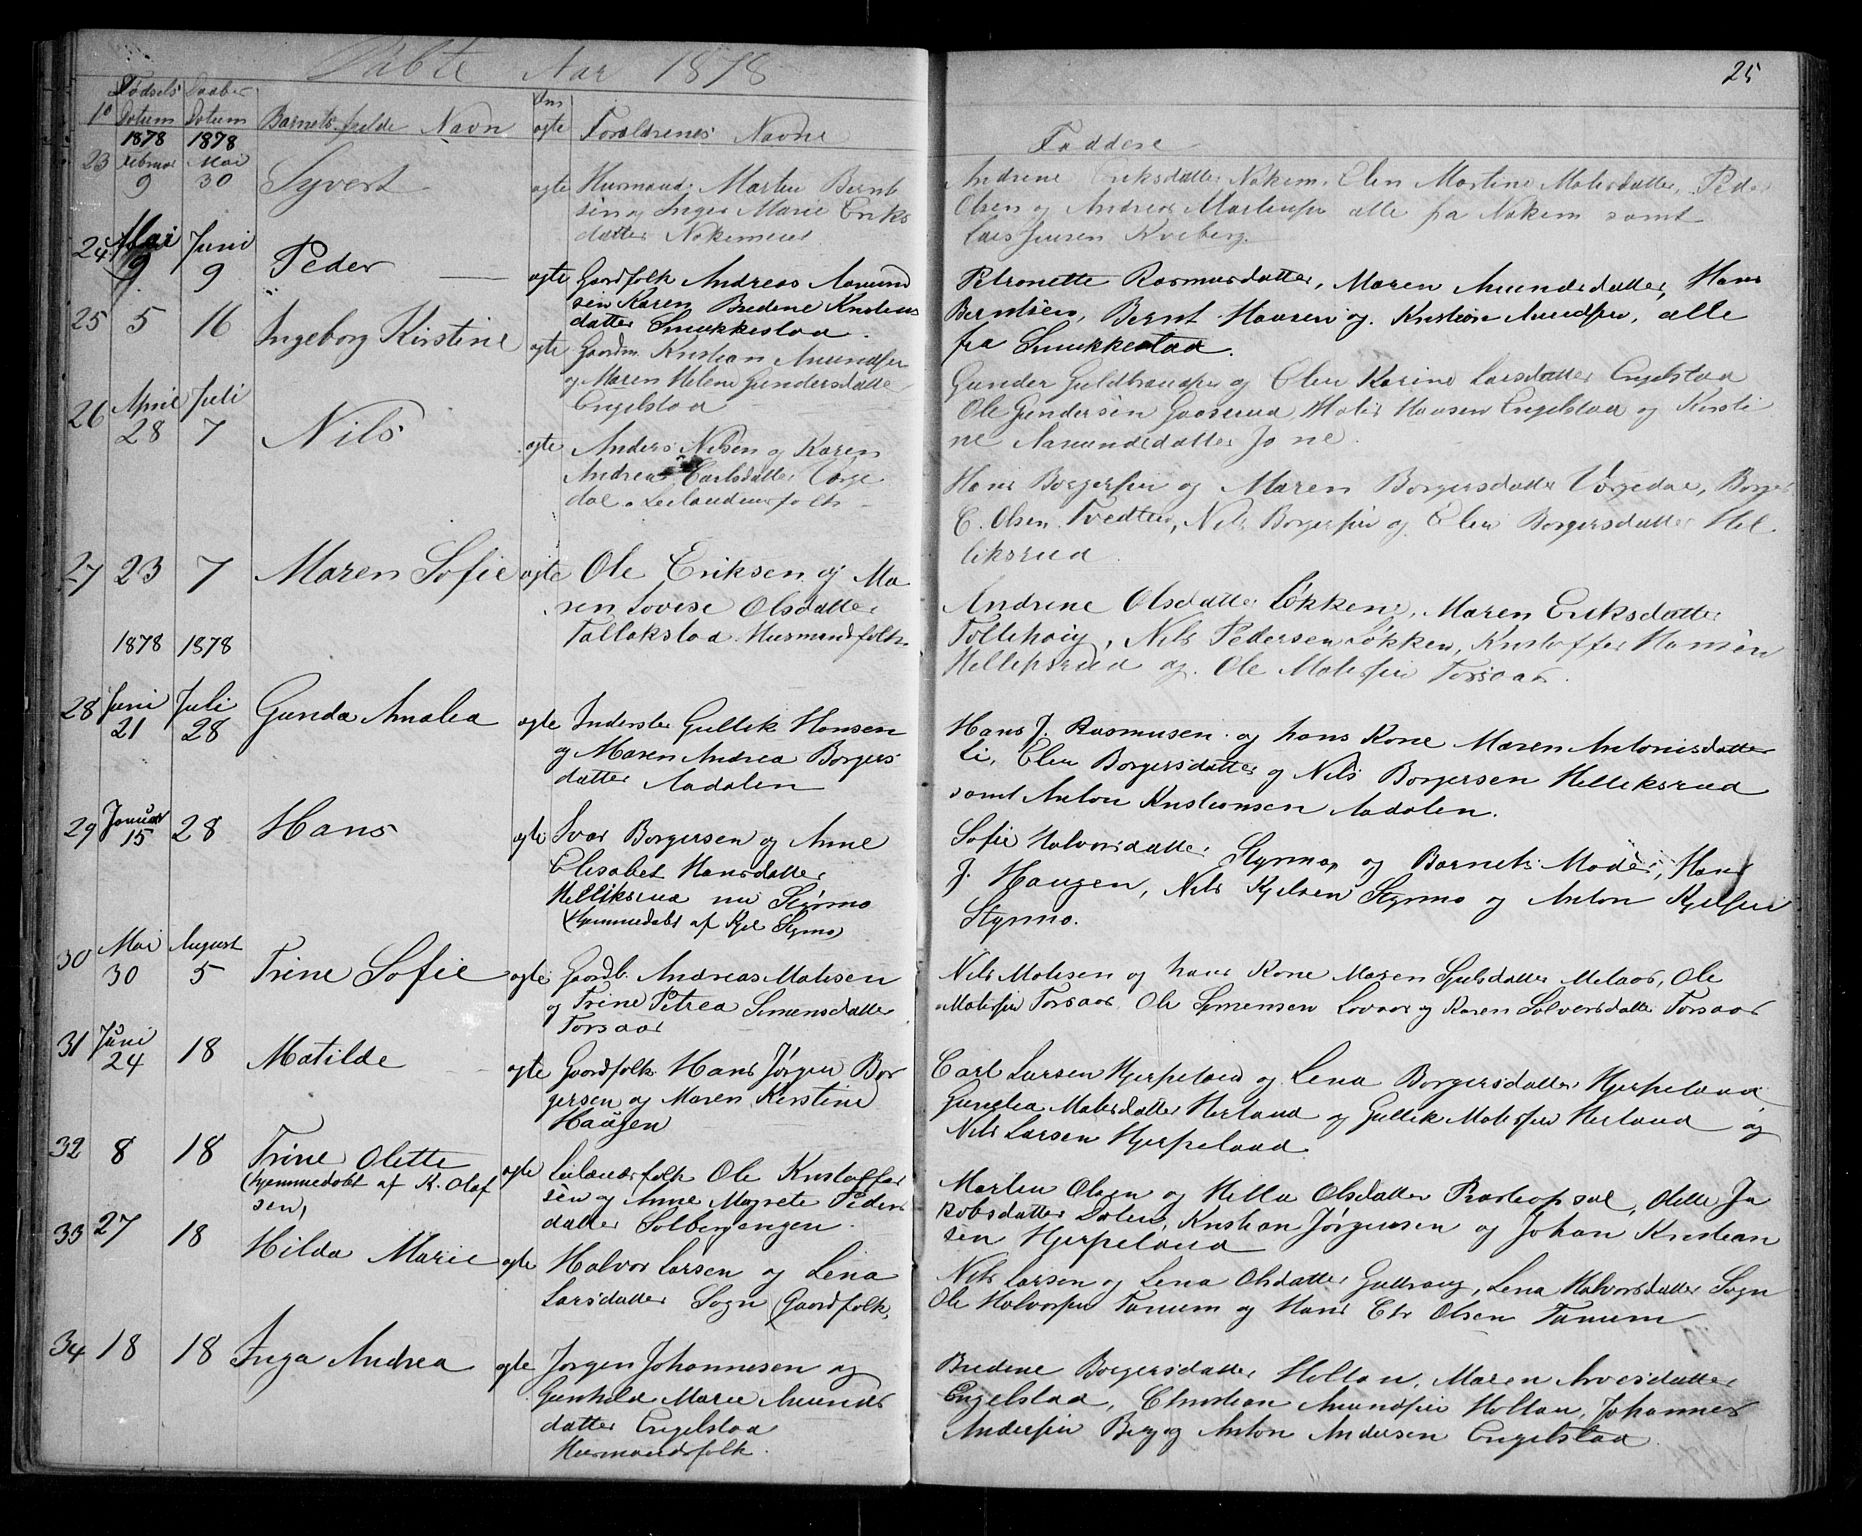 Døbte Aar 1878
25
Fødsels Daabs
10 Datum Datum Barnets fulde Navn Um ægte Forældrenes Navne
Faddere
1878 1878
23 Februar 9 Mai 30 Syvert ægte Husmand. Martin Bernt
sen og Inger Marie Eriks
datter Nokemoen
Andrene Eriksdatter Nokem. Elen Martine Matisdatter, Peder
Olsen og Andreas Martinsen alle fra Nokem samt
Lars Jensen Kveberg.
24 Mai 9 Juni 9 Peder ægte Gaardfolk Andreas Aamund
sen Karen Bredene Kristians
datter Smukkestad.
Petronette Rasmusdatter, Maren Amundsdatter, Hans
Berntsen, Bernt Hansen og Kristian Amundsen, alle
fra Smukkestad.
25 5 16 Ingeborg Kirstine ægte Gaardm. Kristian Amundsen
og Maren Helene Gundersdatter
Engelstad
Gunder Guldbrandsen og Elen Karine Larsdatter Engelstad
Ole Gundersen Gaaserud, Matis Hansen Engelstad og Kirsti
ne Aamundsdatter Jone.
26 April 28 Juli 7 Nils ægte Anders Nilsen og Karen
Andrea Carlsdatter Vorge
dal. Leilendingsfolk
Hans Borgersen og Maren Borgersdatter Vorgedal, Borger
C. Olsen Tvedten, Nils Borgersen og Elen Borgersdatter Hel
liksrud
27 23 7 Maren Sofie ægte Ole Eriksen og Ma
ren Lovise Olsdatter
Tollakstad Husmandsfolk
Andrene Olsdatter Løkken, Maren Eriksdatter
Tollehaig, Nils Pedersen Løkken, Kristoffer Hansen
Helliksrud og Ole Matisen Torsaas.
1878 1878
28 Juni 21 Juli 28 Gunda Amalia ægte Inderster Gullik Hansen
og Maren Andrea Borgers
datter Aadalen
Hans J. Rasmusen og hans Kone Maren Antonisdatter
Li, Elen Borgersdatter og Nils Borgersen Helliksrud
samt Anton Kristiansen Aadalen.
29 Januar 15 28 Hans ægte Ivar Borgersen og Anne
Elisabet Hansdatter
Helliksrud nu Styrmo
(hjemmedøbt af Kjel Styrmo)
Sofie Halvorsdatter Styrmo og Barnets Moder, Hans
J. Haugen, Nils Kjelsen Styrmo og Anton Kjelsen
Styrmo.
30 Mai 30 August 5 Trine Sofie ægte Gaardb. Andreas Matisen
og Trine Petrea Simensdatter
Torsaas
Nils Matisen og hans Kone Maren Sjulsdatter Melaas, Ole
Matisen Torsaas Ole Simensen Lovaas og Karen Solversdatter Torsaas
31 Juni 24 18 Matilde ægte Gaardfolk Hans Jørgen Bor
gersen og Maren Kirstine
Haugen
Carl Larsen Hjerpeland og Lena Borgersdatter Hjerpeland
Gunelia Matisdatter Herland og Gullik Matisen Herland og
Nils Larsen Hjerpeland.
32 8 18 Trine Olette
(hjemmedøbt af K. Olaf
sen)
ægte Leilændsfolk Ole Kristoffer
sen og Anne Magrete Peders
datter Solbergengen.
Martin Olsen og Hella Olsdatter Prestopsal, Olette Ja
kobsdatter Dalen, Kristian Jørgensen og Johan Kristian
sen Hjerpeland
33 27 18 Hilda Marie ægte Halvor Larsen og Lena
Larsdatter Sogn (Gaardfolk)
Nils Larsen og Lena Olsdatter Guttraug, Lena Halvorsdatter Sogn
Ole Halvorsen Tanum og Hans Chr Olsen Tanum
34 18 18 Inga Andrea ægte Jørgen Johannesen og
Gunhild Marie Amunds
datter Engelstad
Husmandsfolk.
Bredene Borgersdatter Holtan, Maren Arvesdatter
Engelstad, Christian Amundsen Holtan, Johannes
Andersen Berg og Anton Andersen Engelstad.